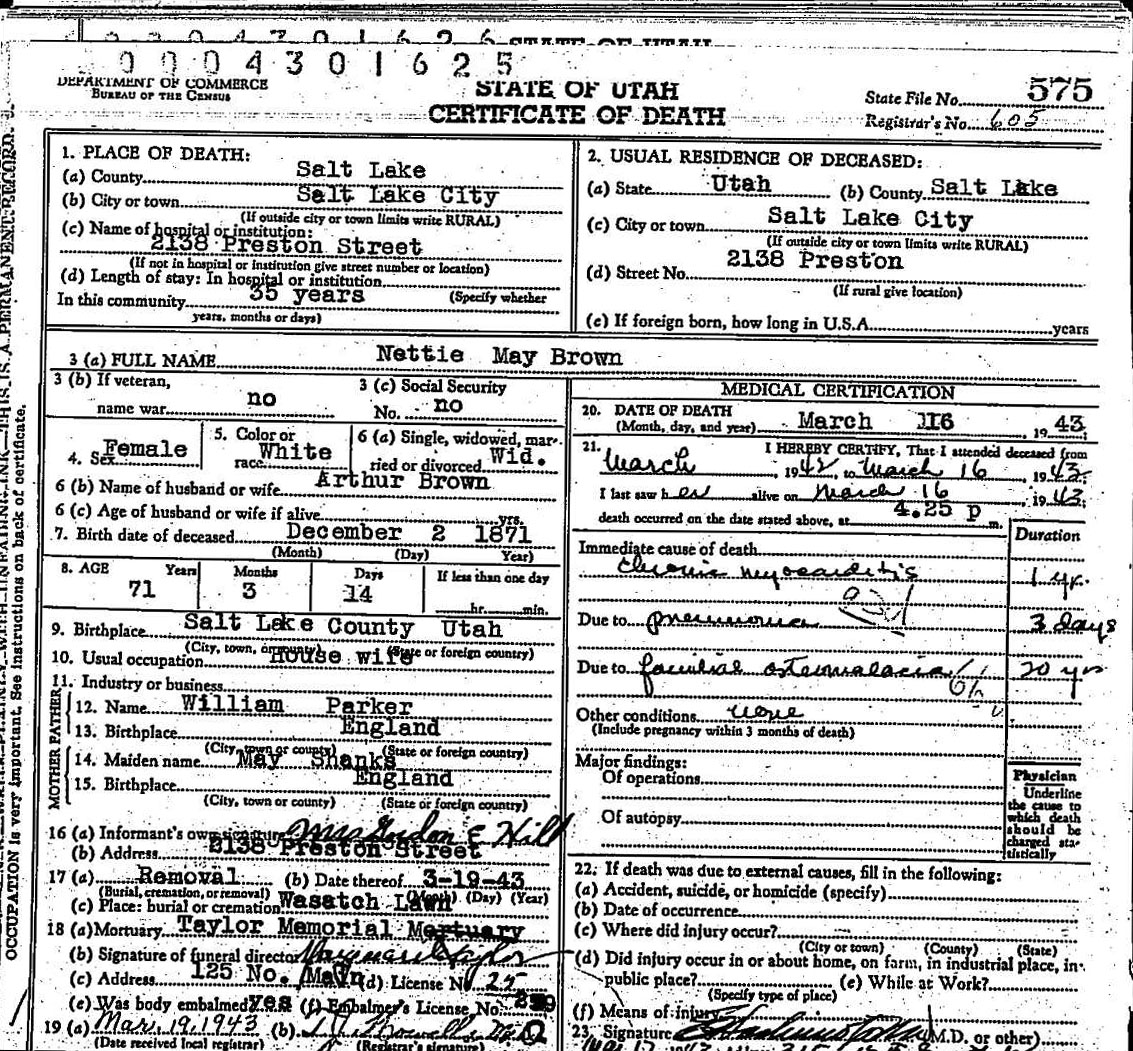 0004701626 STATE OF UTAH
0004301625
DEPARTMENT OF COMMERCE
BUREAU OF THE CENSUS
STATE OF UTAH
CERTIFICATE OF DEATH
State File No. 575
Registrar's No. 605
1. PLACE OF DEATH:
(a) County Salt Lake
(b) City or town Salt Lake City
(If outside city or town limits write RURAL)
(c) Name of hospital or institution:
2138 Preston Street
(If not in hospital or institution give street number or location)
(d) Length of stay: In hospital or institution
In this community 35 years (Specify whether
years, months or days)
2. USUAL RESIDENCE OF DECEASED:
(a) State Utah (b) County Salt Lake
(c) City or town Salt Lake City
(If outside city or town limits write RURAL)
(d) Street No. 2138 Preston
(If rural give location)
(e) If foreign born, how long in U.S.A. years
3 (a) FULL NAME Nettie May Brown
3 (b) If veteran,
name war no
3 (c) Social Security
No. no
4. Sex Female
5. Color or
race White
6 (a) Single, widowed, mar-
ried or divorced Wid.
6 (b) Name of husband or wife Arthur Brown
6 (c) Age of husband or wife if alive yrs.
7. Birth date of deceased December 2 1871
(Month) (Day) Year)
8. AGE Years Months Days If less than one day
71 3 14 hr. min.
9. Birthplace Salt Lake County Utah
(City, town, or county) (State or foreign country)
10. Usual occupation House wife
11. Industry or business
FATHER
12. Name William Parker
13. Birthplace England
(City, town or county) (State or foreign country)
MOTHER
14. Maiden name May Shanks
15. Birthplace England
(City, town or county) (State or foreign country)
16 (a) Informant's own signature Mrs Gordon E Hill
(b) Address 2138 Preston Street
17 (a) Removal (b) Date thereof 3-19-43
(Burial, cremation, or removal) (Month) (Day) (Year)
(c) Place: burial or cremation Wasatch Lawn
18 (a) Mortuary Taylor Memorial Mortuary
(b) Signature of funeral director
(c) Address 125 No. Main (d) License No 25
(e) Was body embalmed yes (f) Embalmer's License No.
19 (a) Mar. 19, 1943 (b)
(Date received local registrar) (Registrar's signature)
MEDICAL CERTIFICATION
20. DATE OF DEATH
(Month, day, and year) March 16 1943
21. I HEREBY CERTIFY, That I attended deceased from
March 1942, to March 16, 1943;
I last saw her alive on March 16, 1943;
death occurred on the date stated above, at 4.25 p m.
Duration
Immediate cause of death
Chronic myocarditis 1 yr.
Due to pneumonia 3 days
Due to familial osteomalacia 20 yrs
Other conditions none
(Include pregnancy within 3 months of death)
Major findings:
Of operations
Of autopsy
Physician
Underline
the cause to
which death
should be
charged sta-
tistically
22. If death was due to external causes, fill in the following:
(a) Accident, suicide, or homicide (specify)
(b) Date of occurrence
(c) Where did injury occur?
(City or town) (County) (State)
(d) Did injury occur in or about home, on farm, in industrial place, in
public place? (e) While at Work?
(Specify type of place)
(f) Means of injury
23. Signature (M.D. or other)
OCCUPATION is very important. See instructions on back of certificate.
THIS IS A PERMANENT RECORD.